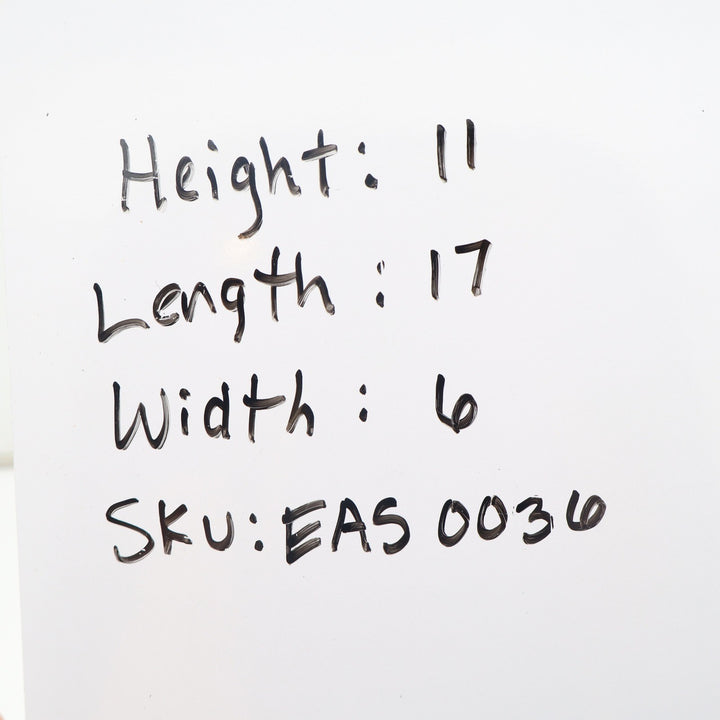 Height: 11
Length: 17
Width: 6
SKU: EAS 0036